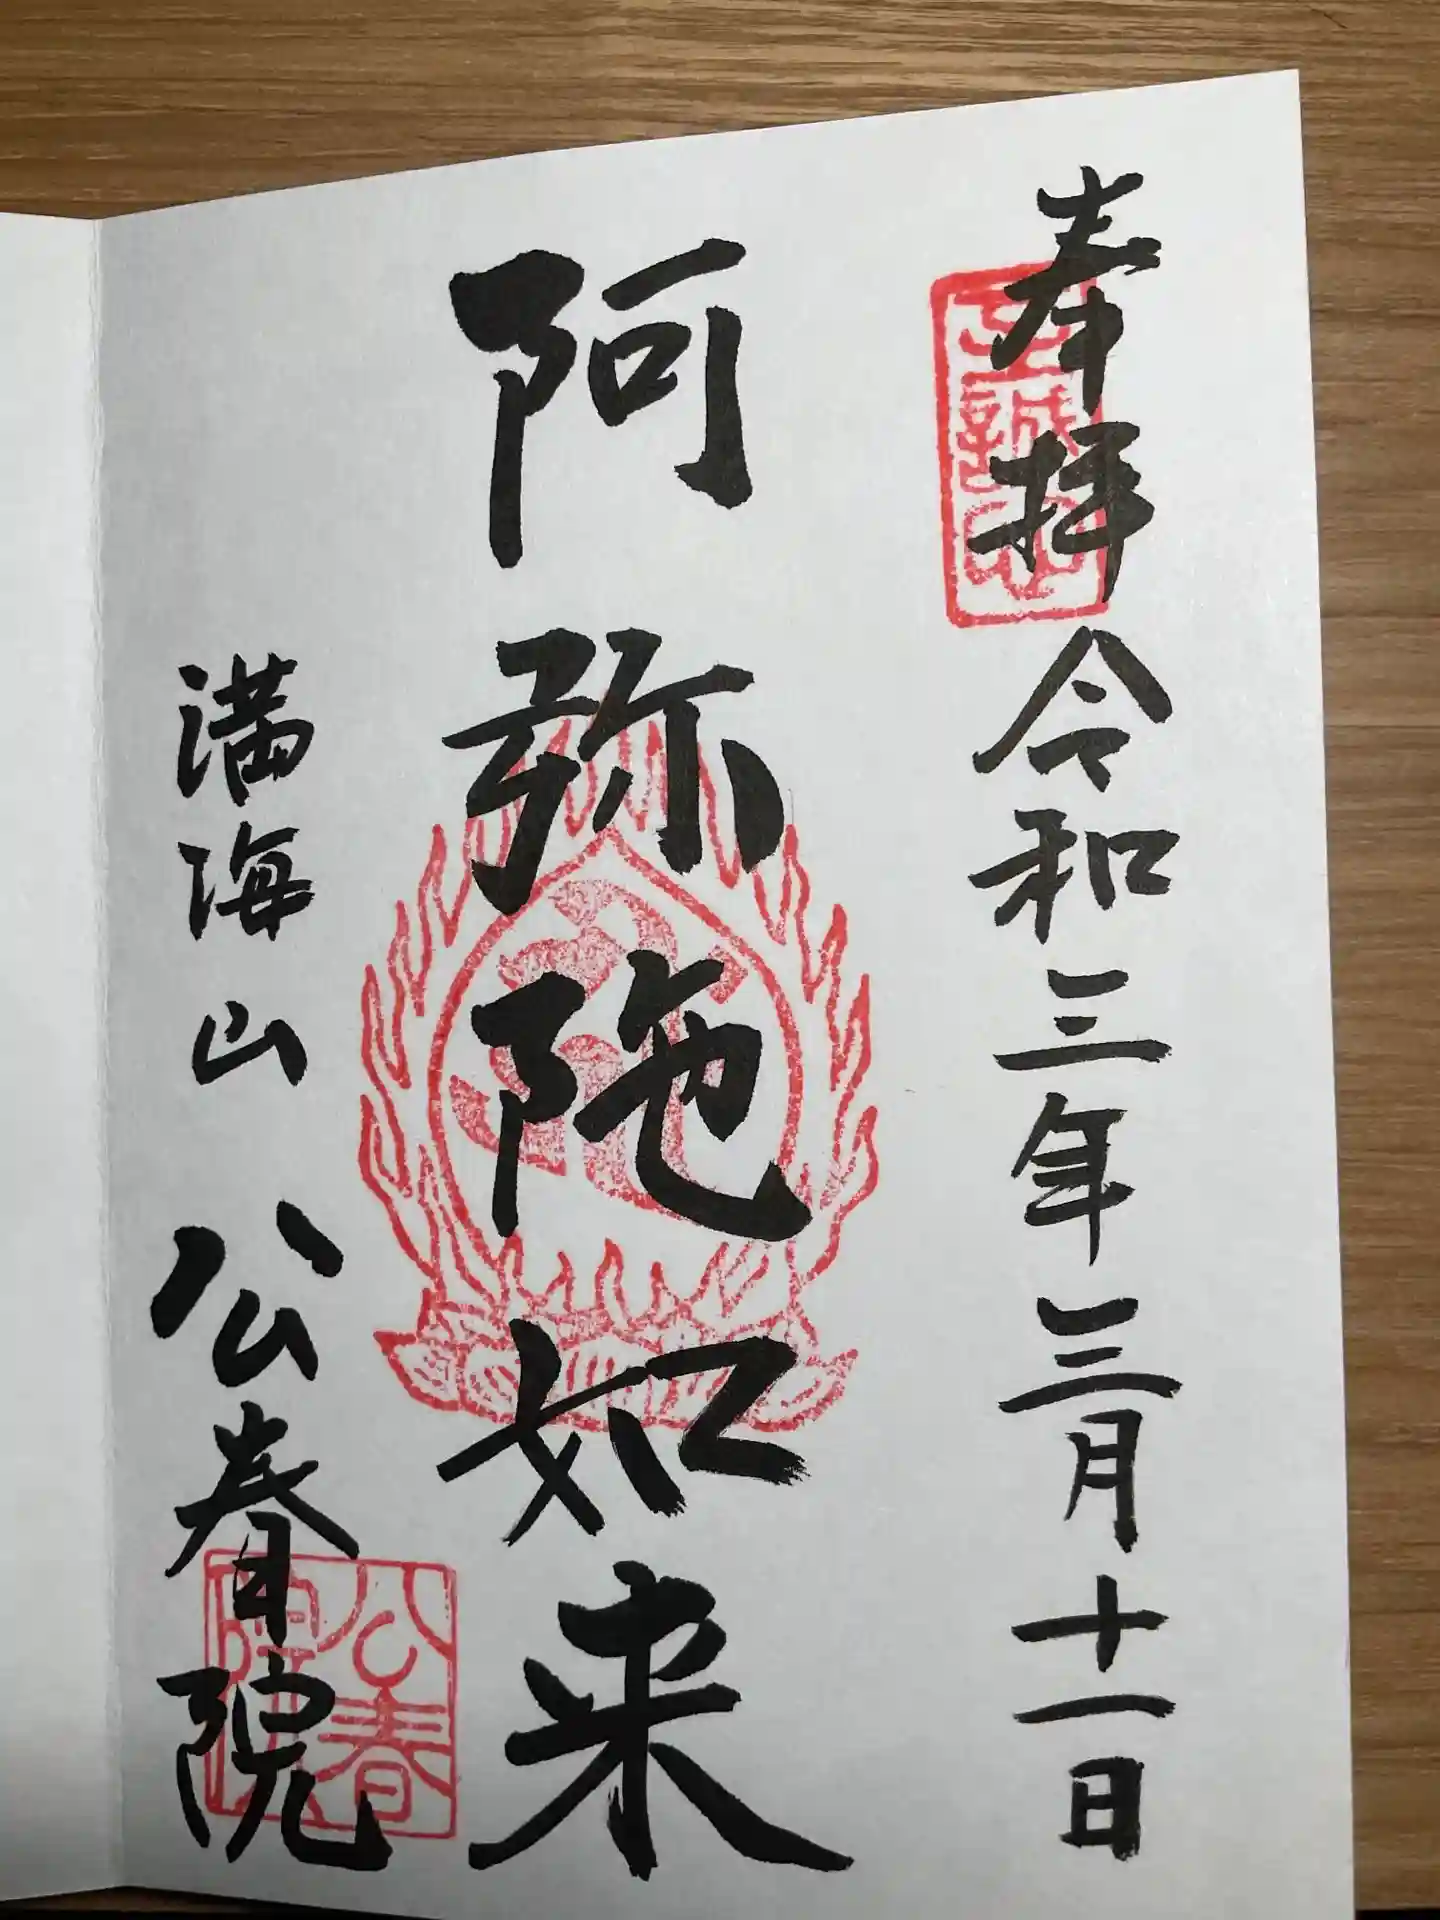 奉拝 令和三年三月十一日
阿弥陀如来
満海山 公春院
公春
院